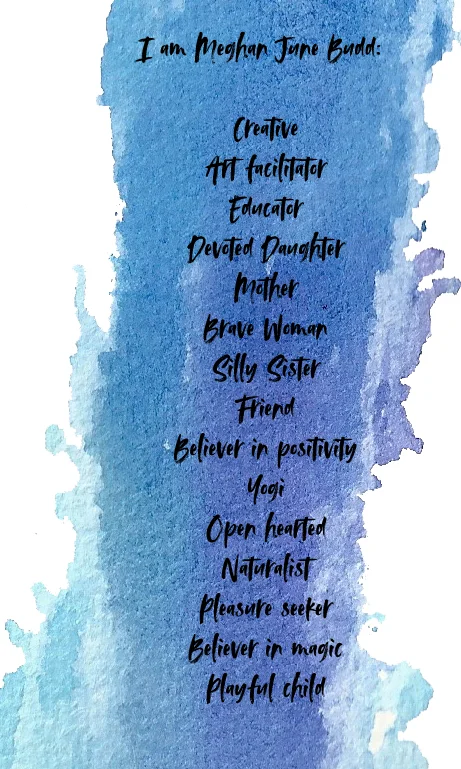 I am Meghan June Budd:
Creative
Art facilitator
Educator
Devoted Daughter
Mother
Brave Woman
Silly Sister
Friend
Believer in positivity
Yogi
Open hearted
Naturalist
Pleasure seeker
Believer in magic
Playful child